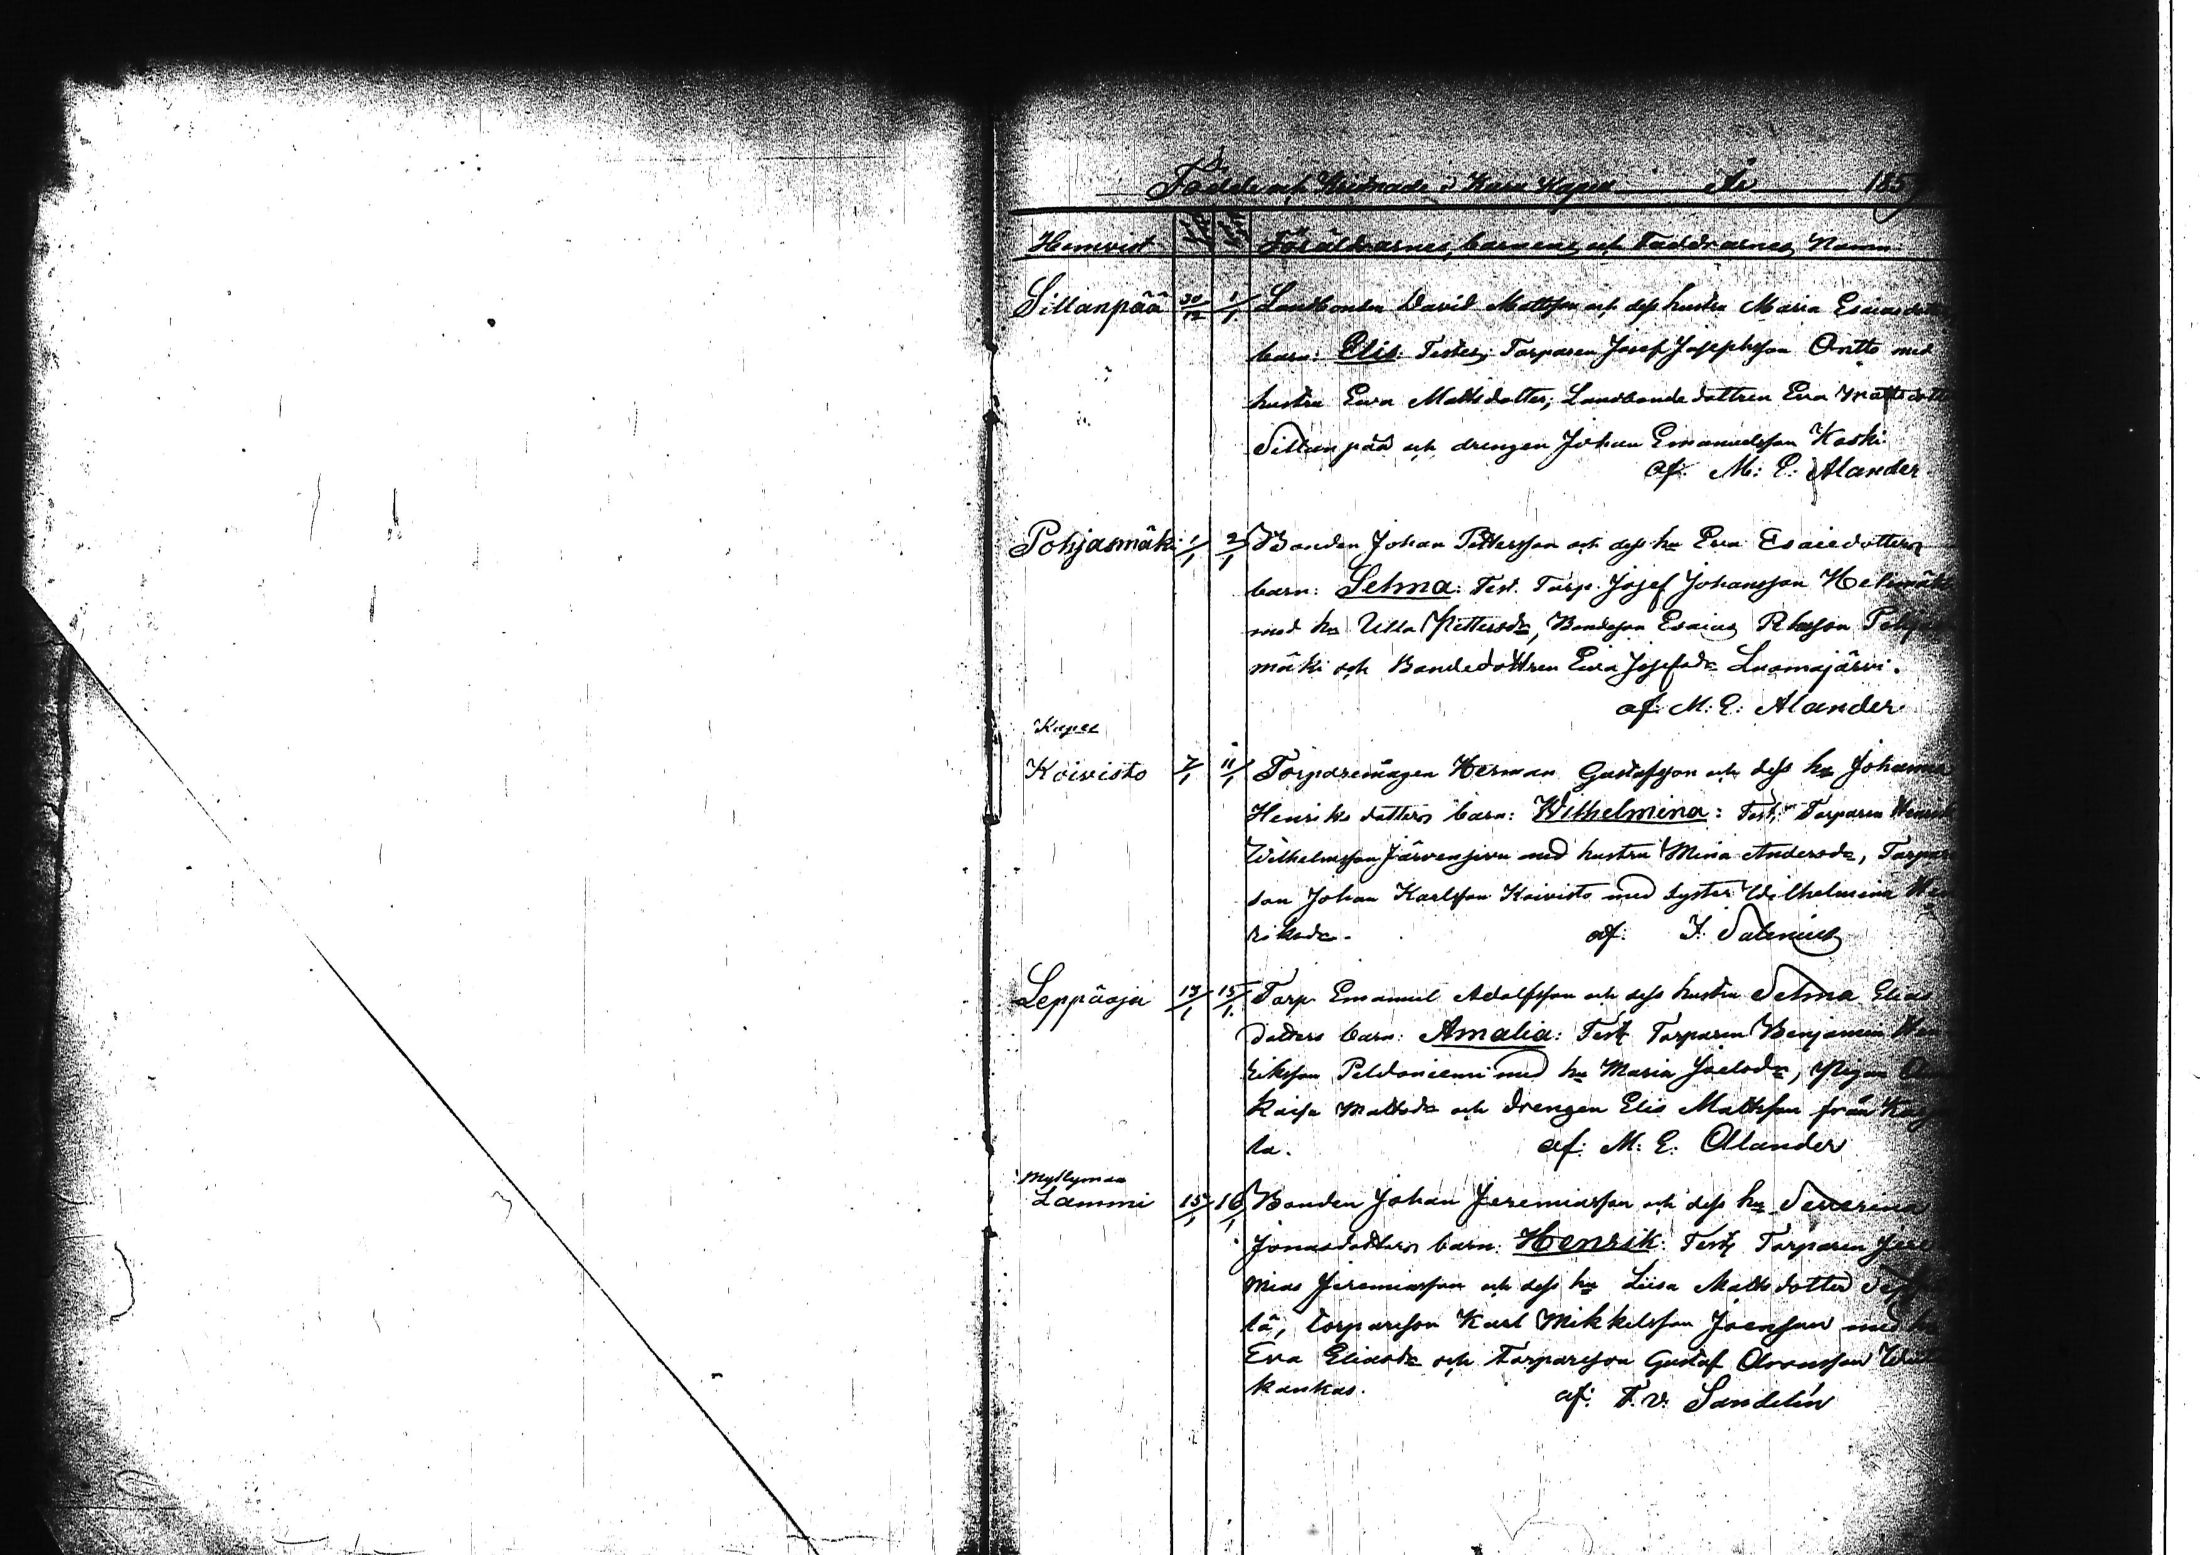 Födde och Kristnade i Kura Kapell År 185
Hemvist Föräldrarnes, barnens och Faddrarnes Namn
Sillanpää 30/12 1/1 Landbonden David Mattsson och dess hustru Maria Esaiasdotte
barn: Elis: Testes; Torparen Josef Josephsson Antto med
hustru Ewa Mattsdotter; Landbondedottren Eva Mattsdotte
Sillanpää och drengen Johan Emanuelsson Koski
af: M: E: Alander
Pohjasmäki 1/1 2/1 Bonden Johan Pettersson och dess hu Eva Esaiedotters
barn: Selma: Test. Torp. Josef Johansson
med hu Ulla Pettersdr, Bondeson Esaias
mäki och Bondedottren Eva Josefsdr Luomajärvi.
af: M: E: Alander
Koivisto 7/1 11/1 Torparemågen Herman Gustafsson och dess hu Johanna
Henriksdotters barn: Wilhelmina: Test; Torparen Henrik
Wilhelmsson Järvensivu med hustru Mina Andersdr, Torpar
son Johan Karlsson Koivisto med syster Wilhelmina Hen
riksdr. af: I. Salenius
Leppäoja 13/1 15/1 Torp. Emanuel Adolfsson och dess hustru Selma Elias
dotters barn: Amalia: Test Torparen Benjamin Hen
riksson Peldoniemi med hu Maria Joelsdr, Pigan
Kaisa Mattsdr och drengen Elis Mattsson från
la. af: M: E: Alander
Myllymaa
Lammi 15/1 16/1 Bonden Johan Jeremiasson och dess hu Severina
Jonasdotters barn: Henrik: Test; Torparen Jere
mias Jeremiasson och dess hu Liisa Mattsdotter
lä, torpareson Karl Mikkelsson Joensuu med hu
Eva Eliasdr och Torpareson Gustaf
kankas. af: F. v. Sandelin